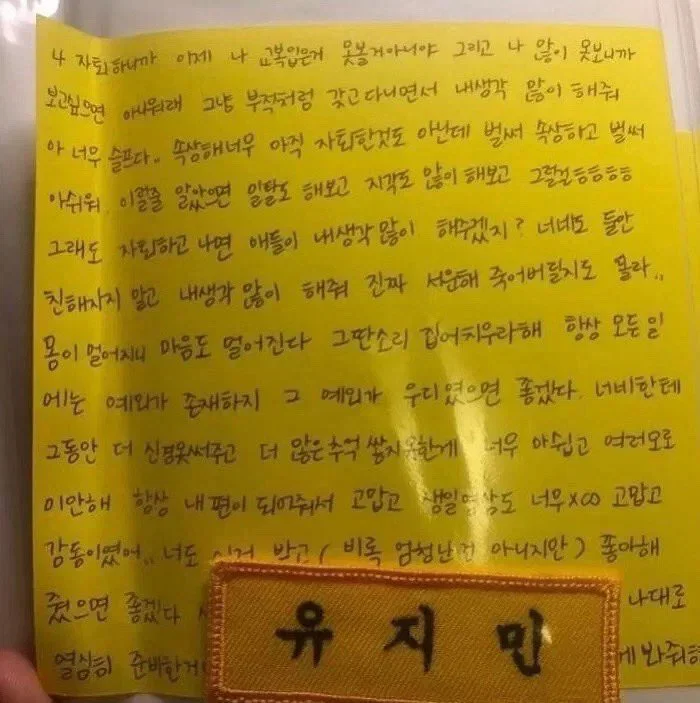 나 자퇴하니까 이제 나 교복입은거 못볼거아니야 그리고 나 많이 못보니까
보고싶으면 아쉬워래 그냥 부적처럼 갖고다니면서 내생각 많이 해줘
아 너무 슬프다.. 속상해너무 아직 자퇴한것도 아닌데 벌써 속상하고 벌써
아쉬워. 이럴줄 알았으면 일탈도 해보고 지각도 많이 해보고 그럴걸ㅎㅎㅎㅎ
그래도 자퇴하고 나면 애들이 내생각 많이 해주겠지? 너네도 둘만
친해지지 말고 내생각 많이 해줘 진짜 서운해 죽어버릴지도 몰라..
몸이 멀어지니 마음도 멀어진다 그딴소리 집어치우라해 항상 모든일
에는 예외가 존재하지 그 예외가 우리였으면 좋겠다. 너네한테
그동안 더 신경못써주고 더 많은추억 쌓지못한게 너무 아쉽고 여러모로
미안해 항상 내편이 되어줘서 고맙고 생일영상도 너무xco 고맙고
감동이였어.. 너도 이거 받고 (비록 엄청난건 아니지만) 좋아해
줬으면 좋겠다 나대로
열심히 준비한거 게 봐줘
유지민